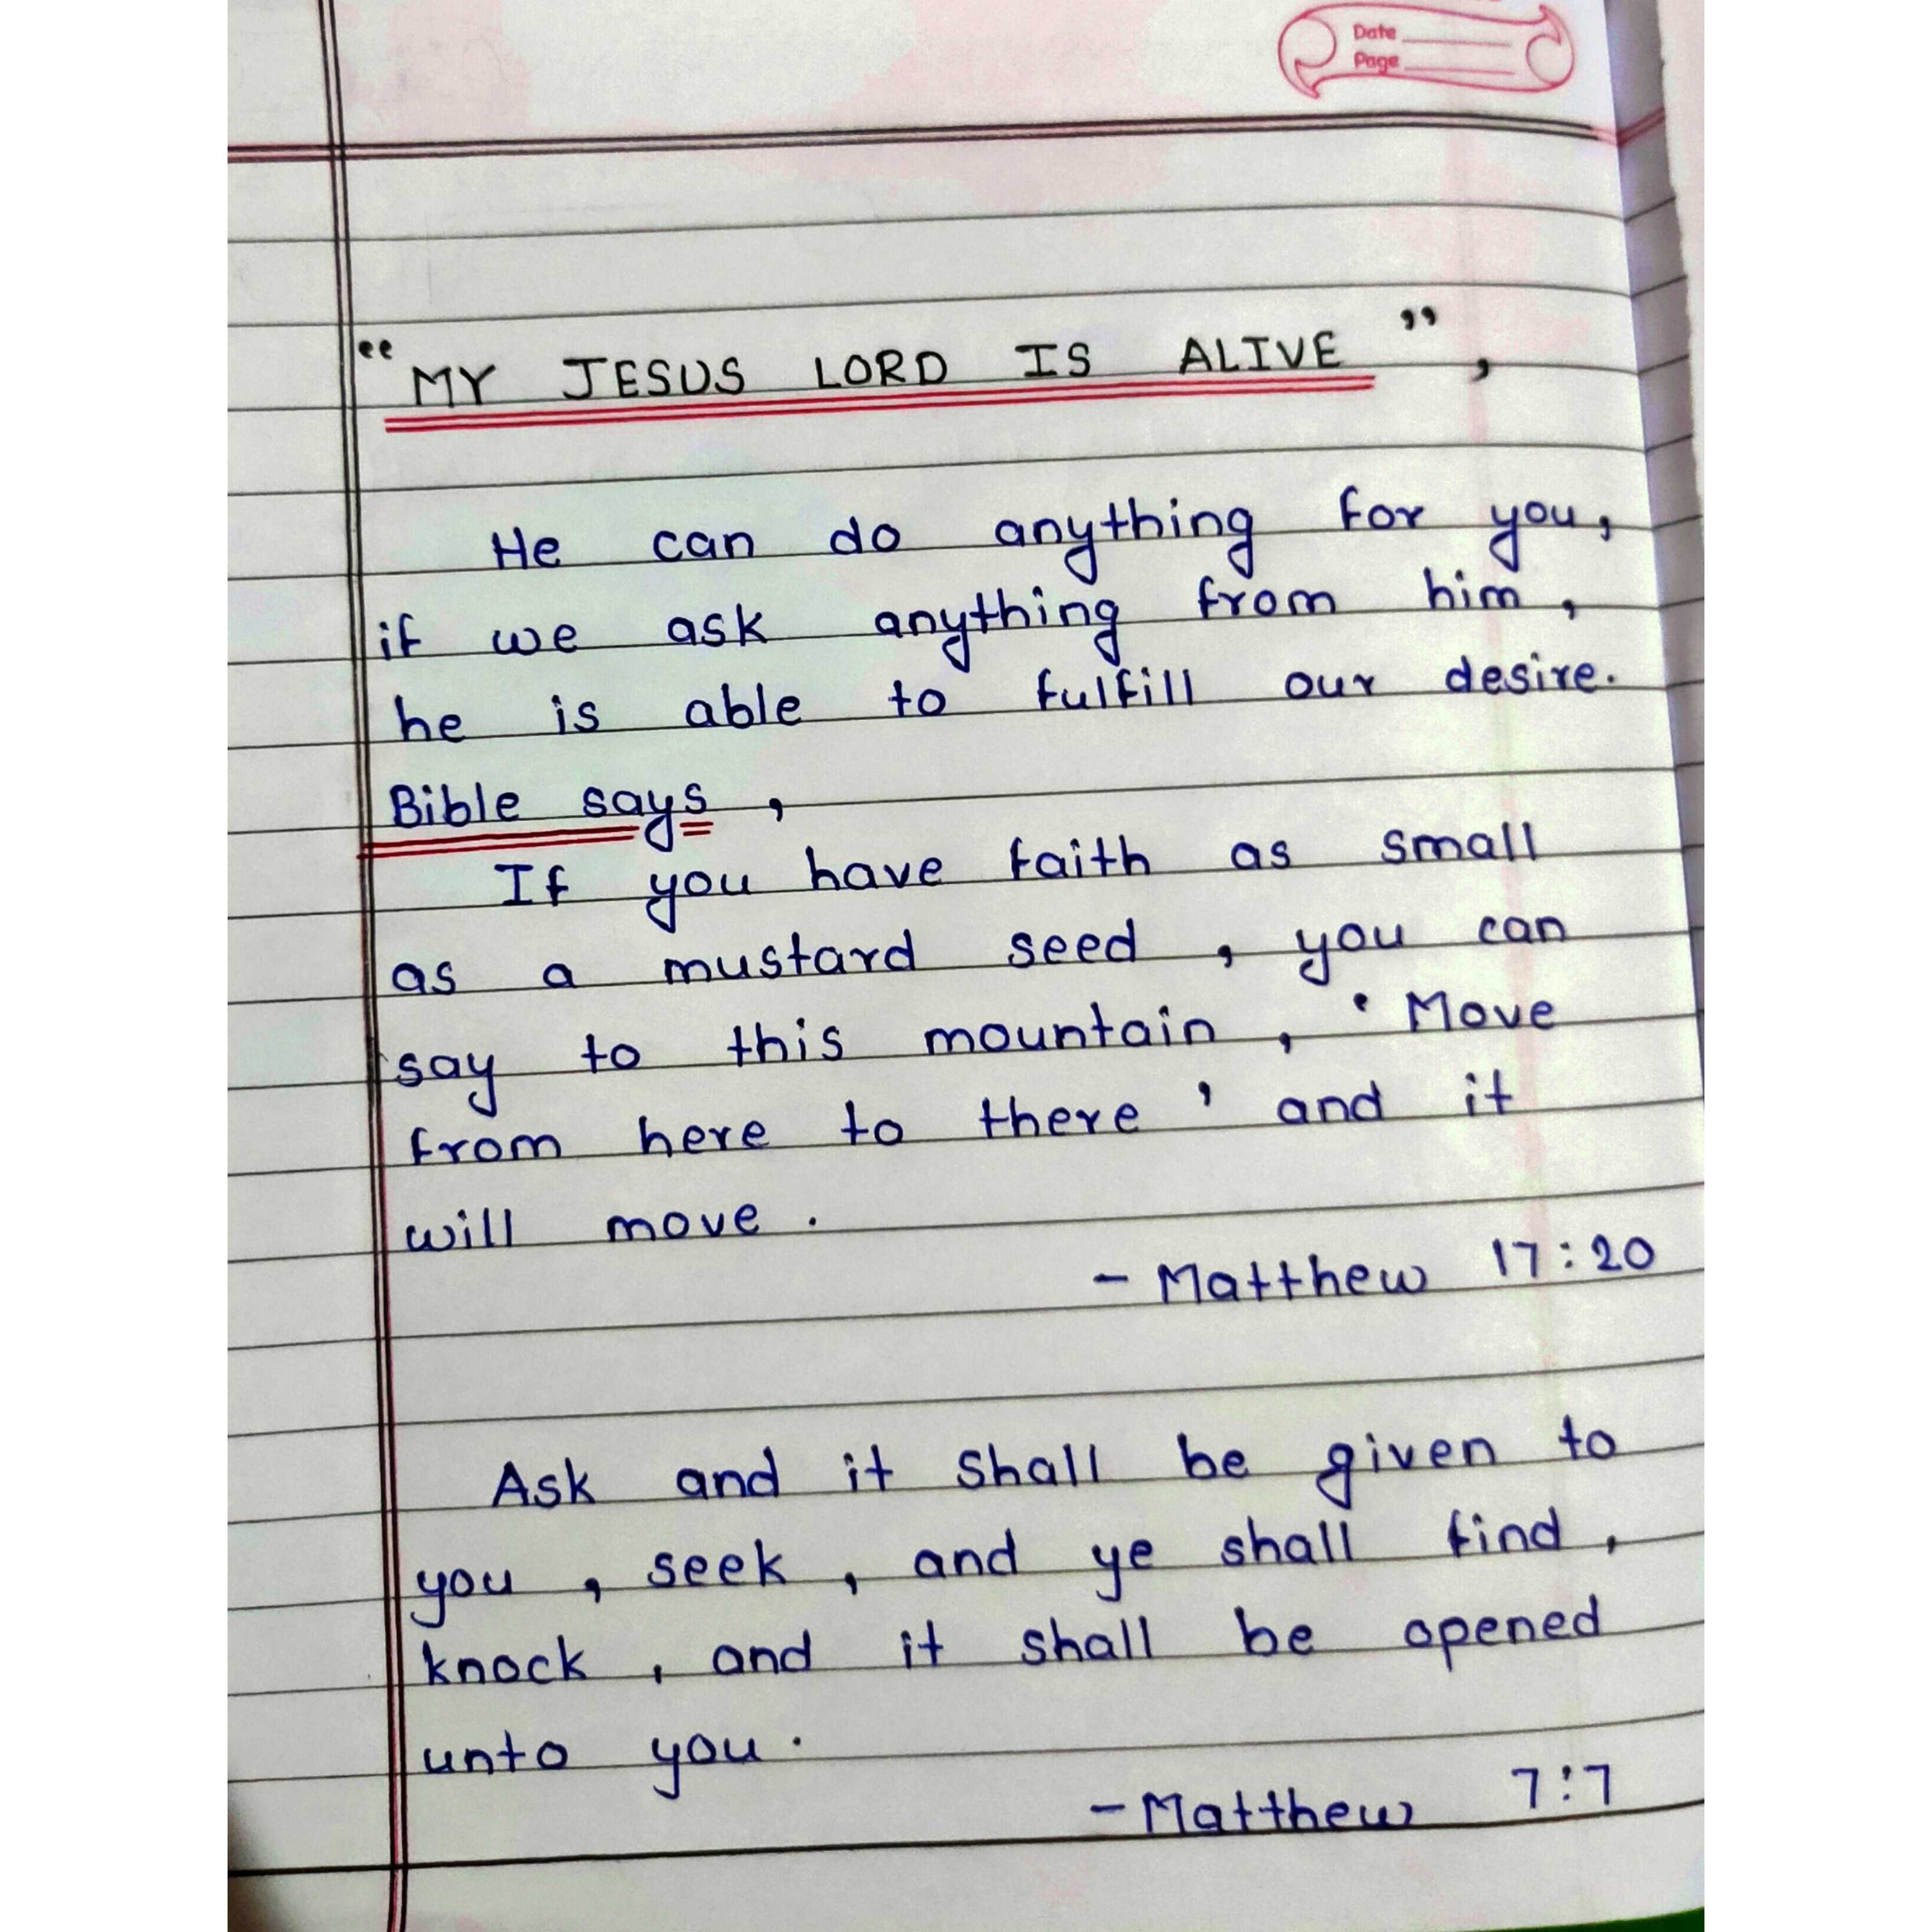 Date
Page
"MY JESUS LORD IS ALIVE",
He can do anything for you,
if we ask anything from him,
he is able to fulfill our desire.
Bible says,
If you have faith as small
as a mustard seed, you can
say to this mountain, 'Move
from here to there' and it
will move.
- Matthew 17:20
Ask and it shall be given to
you, seek, and ye shall find,
knock, and it shall be opened
unto you.
- Matthew 7:7